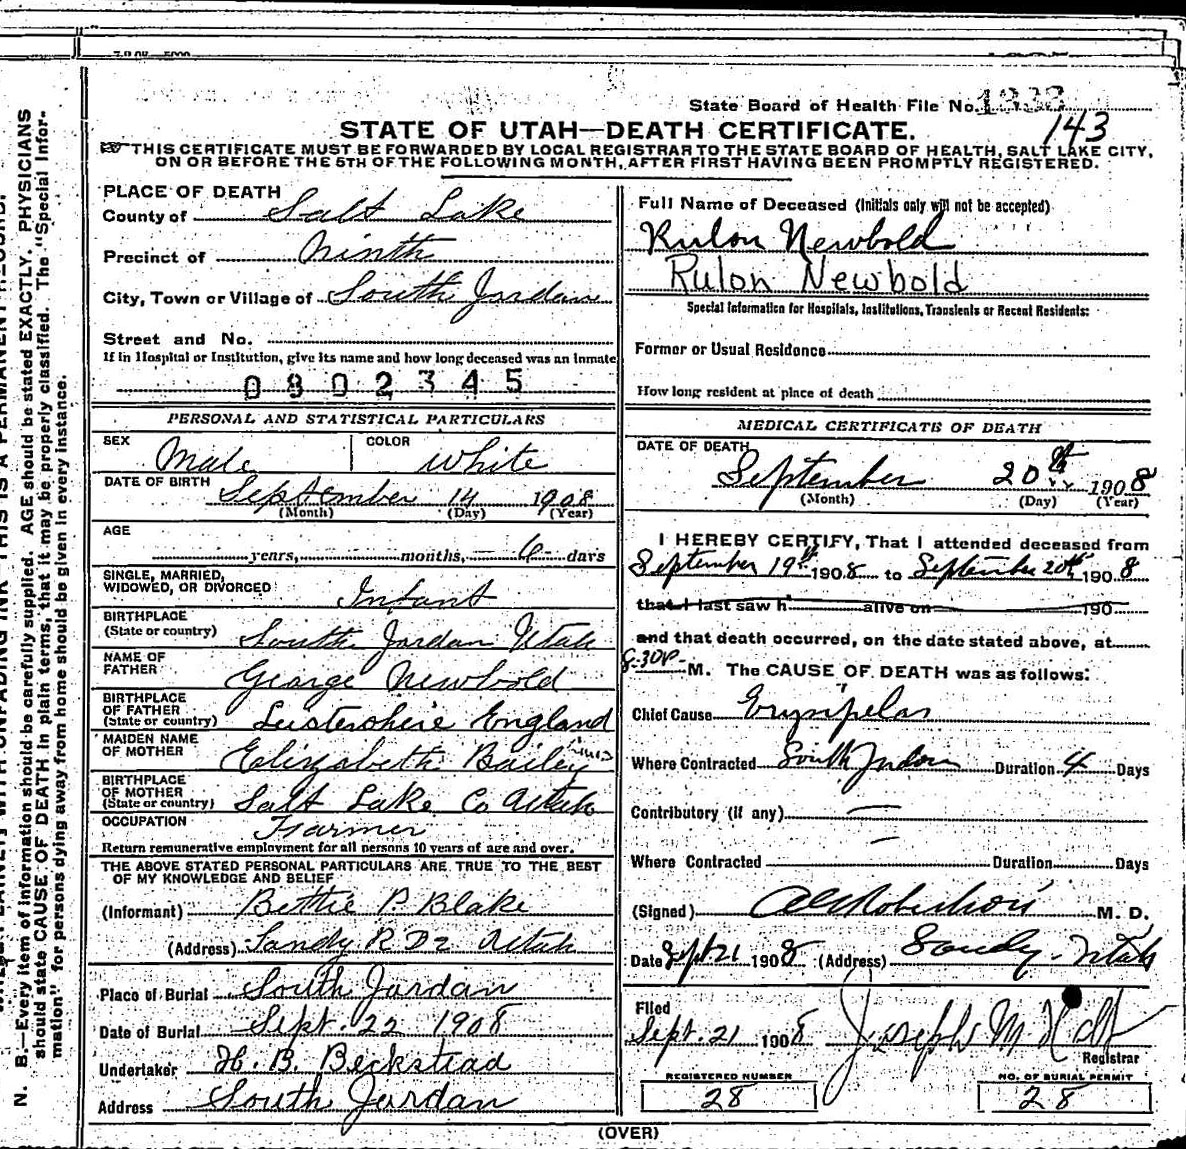 State Board of Health File No. 1333
143
STATE OF UTAH—DEATH CERTIFICATE.
THIS CERTIFICATE MUST BE FORWARDED BY LOCAL REGISTRAR TO THE STATE BOARD OF HEALTH, SALT LAKE CITY,
ON OR BEFORE THE 5TH OF THE FOLLOWING MONTH, AFTER FIRST HAVING BEEN PROMPTLY REGISTERED.
PLACE OF DEATH
County of Salt Lake
Precinct of Ninth
City, Town or Village of South Jordan
Street and No.
If in Hospital or Institution, give its name and how long deceased was an inmate
0802345
PERSONAL AND STATISTICAL PARTICULARS
SEX Male COLOR White
DATE OF BIRTH September 14 1908
(Month) (Day) (Year)
AGE
years, months, 6 days
SINGLE, MARRIED,
WIDOWED, OR DIVORCED Infant
BIRTHPLACE
(State or country) South Jordan Utah
NAME OF
FATHER George Newbold
BIRTHPLACE
OF FATHER
(State or country) Leistershire England
MAIDEN NAME
OF MOTHER Elizabeth Bailey
BIRTHPLACE
OF MOTHER
(State or country) Salt Lake Co Utah
OCCUPATION Farmer
Return remunerative employment for all persons 10 years of age and over.
THE ABOVE STATED PERSONAL PARTICULARS ARE TRUE TO THE BEST
OF MY KNOWLEDGE AND BELIEF
(Informant) Bettie P. Blake
(Address) Sandy R D 2 Utah
Place of Burial South Jordan
Date of Burial Sept. 22 1908
Undertaker H. B. Beckstead
Address South Jordan
Full Name of Deceased (Initials only will not be accepted)
Rulon Newbold
Rulon Newbold
Special Information for Hospitals, Institutions, Transients or Recent Residents:
Former or Usual Residence
How long resident at place of death
MEDICAL CERTIFICATE OF DEATH
DATE OF DEATH
September 20th 1908
(Month) (Day) (Year)
I HEREBY CERTIFY, That I attended deceased from
September 19th 1908 to September 20th 1908
that I last saw h alive on 190
and that death occurred, on the date stated above, at
8-30P- M. The CAUSE OF DEATH was as follows:
Chief Cause Erysipelas
Where Contracted South Jordan Duration 4 Days
Contributory (if any) —
Where Contracted Duration Days
(Signed) Robertson M. D.
Date Sept 21 1908 (Address) Sandy - Utah
Filed
Sept. 21 1908 Joseph M Holt
Registrar
REGISTERED NUMBER
28
NO. OF BURIAL PERMIT
28
(OVER)
N. B.—Every item of information should be carefully supplied. AGE should be stated EXACTLY. PHYSICIANS
should state CAUSE OF DEATH in plain terms, that it may be properly classified. The "Special Infor-
mation" for persons dying away from home should be given in every instance.